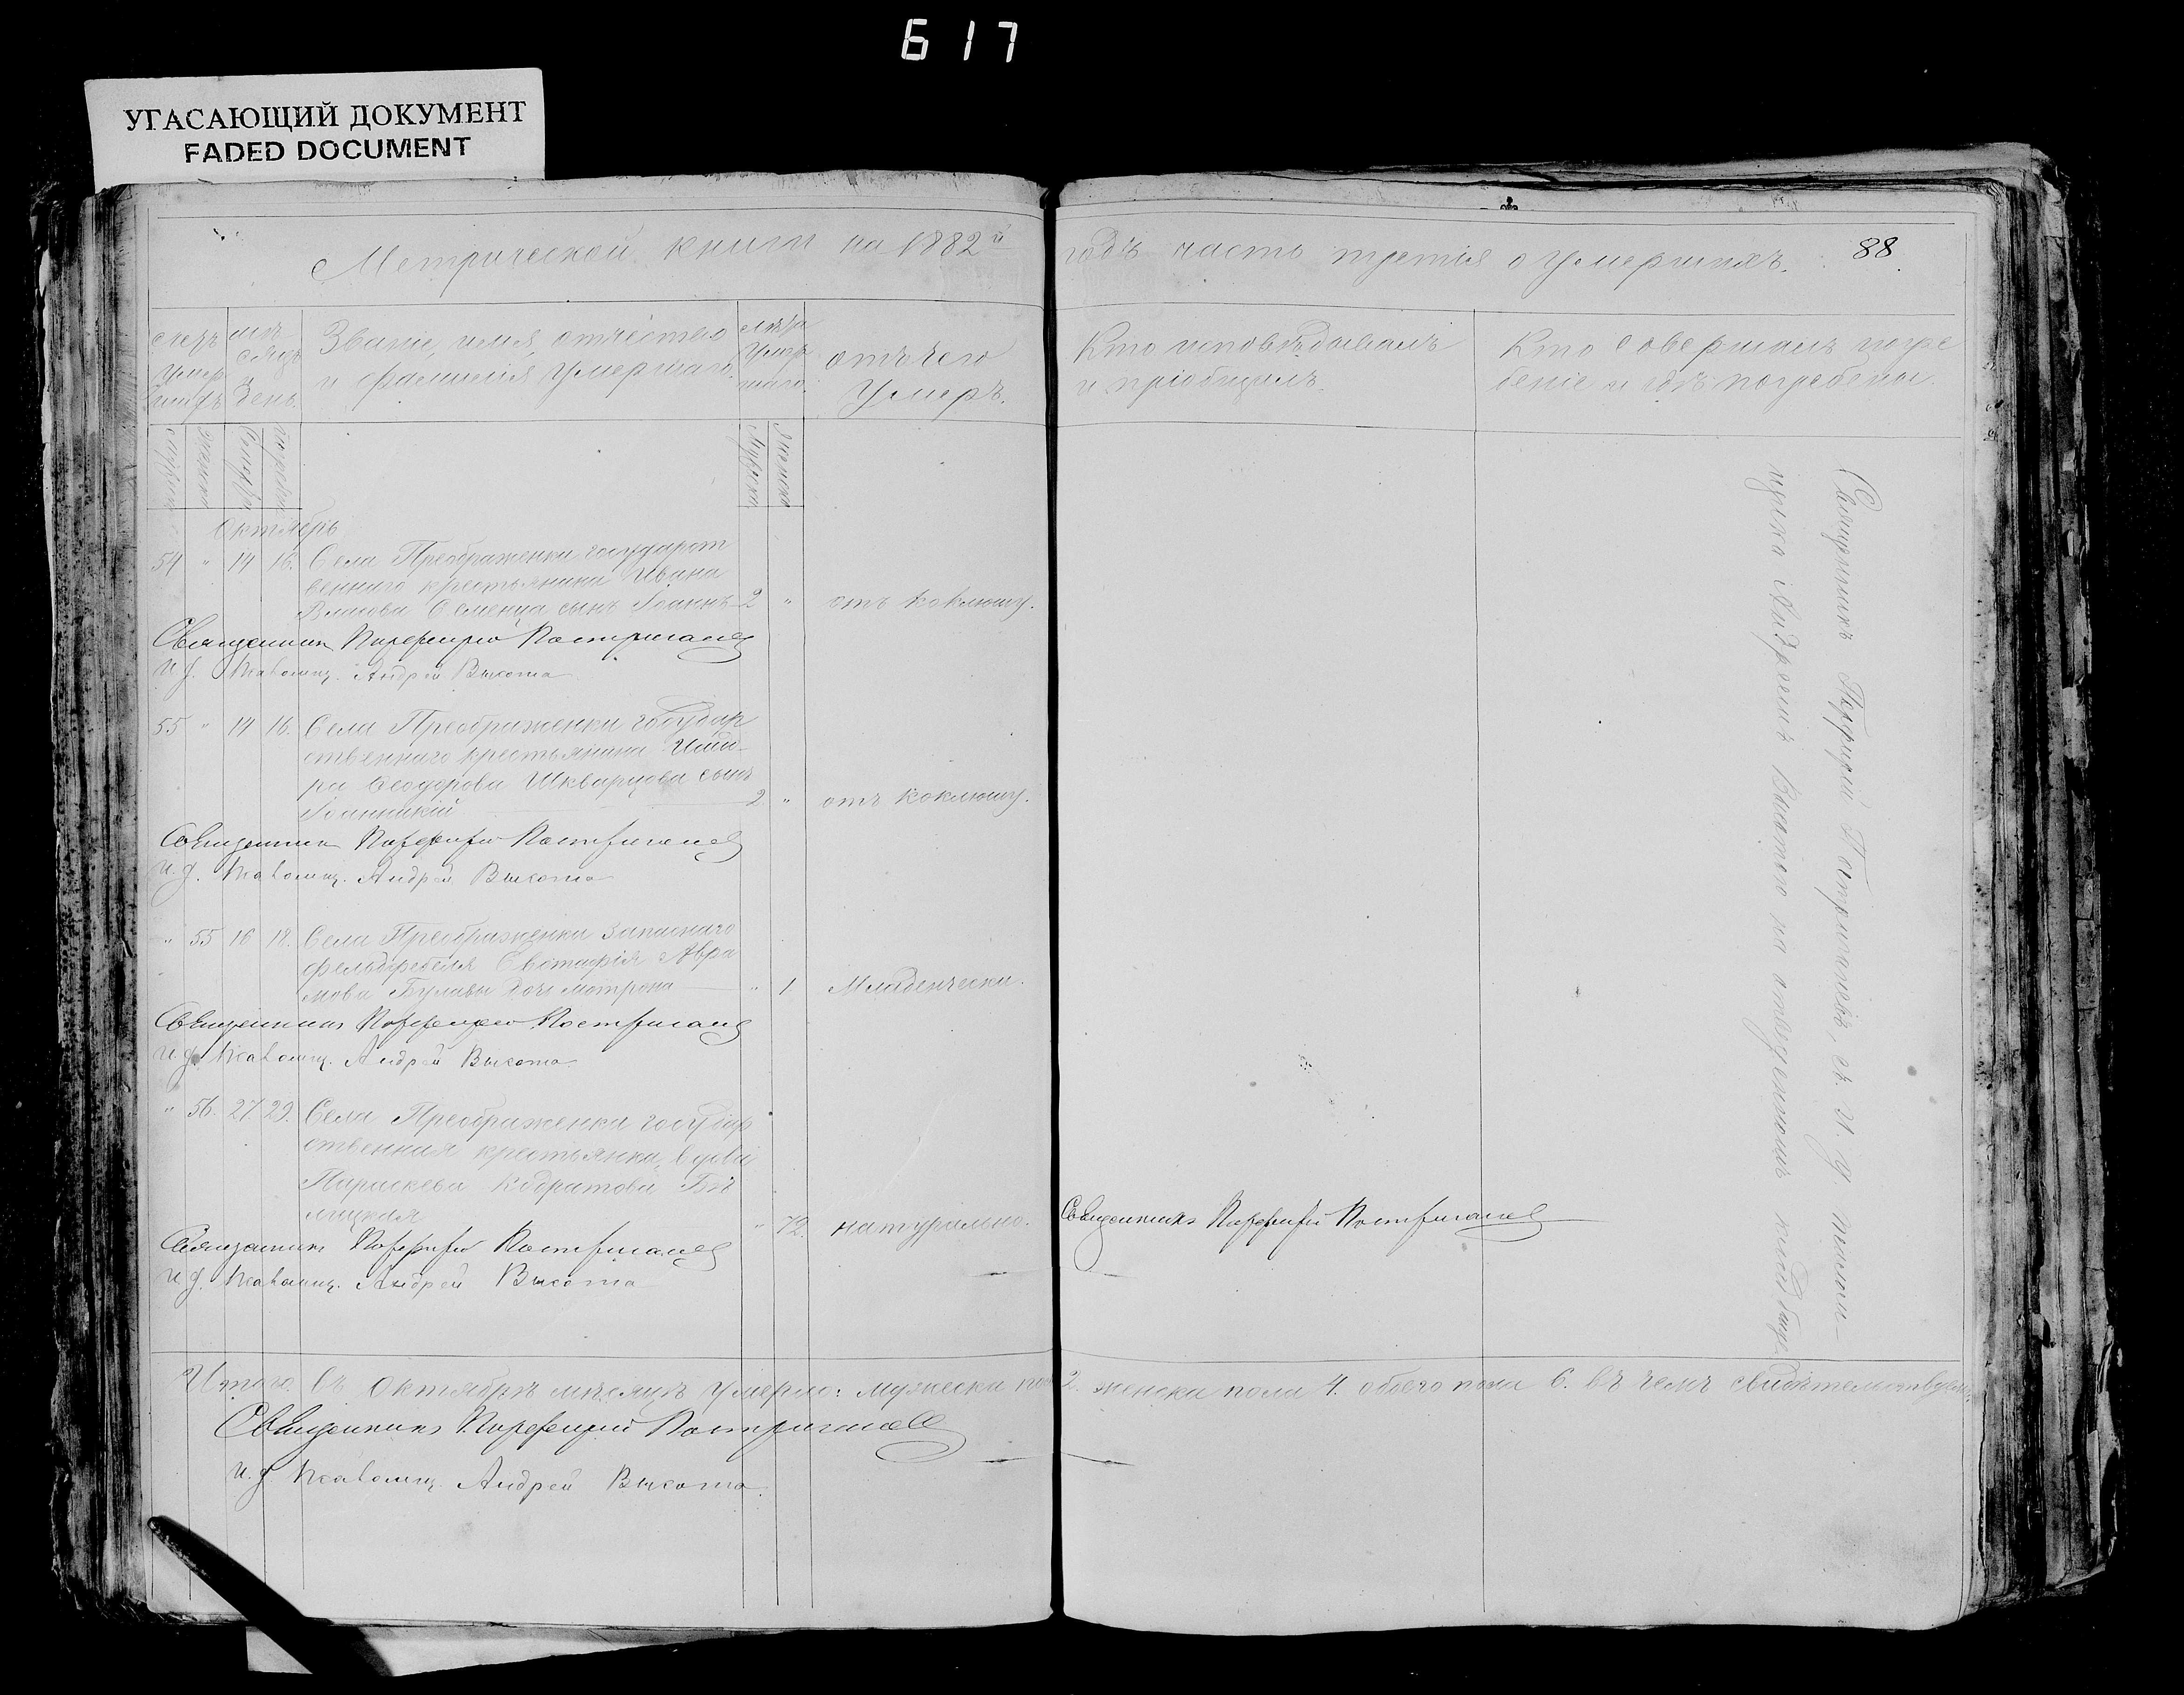 617
УГАСАЮЩИЙ ДОКУМЕНТ
FADED DOCUMENT
Метрической книги на 1882й
годъ часть третія о умершихъ.
88
Счетъ умершихъ
Мѣсяцъ и день.
Званіе, имя, отчество
и фамилія умершаго.
Лѣта умершаго.
отъ чего
умеръ.
Кто исповѣдывалъ
и пріобщилъ.
Кто совершалъ погре
беніе и гдѣ погребены.
Мужска
Женска
Мужска
Женска
Октябрь
54 " 14 16. Села Преображенки государст
веннаго крестьянина Ивана
Власова Семенца сынъ Іоаннъ 2 " отъ коклюшу.
Священникъ Порфирій Постригачевъ
И. д. Псаломщ. Андрей Высота
55 " 14 16. Села Преображенки государ
ственнаго крестьянина
ра Ѳеодорова Шкварцова сынъ
Іоанникій 2 " отъ коклюшу.
Священникъ Порфирій Постригачевъ
И. д. Псаломщ. Андрей Высота
" 55 16 18. Села Преображенки запаснаго
фельдфебеля Евстафія Авра
мова Булавы дочь Матрона " 1 Младенчески.
Священникъ Порфирій Постригачевъ
И. д. Псаломщ. Андрей Высота
" 56. 27 29. Села Преображенки государ
ственная крестьянка, вдова
Параскева Кодратова Бѣ
лицкая " 72. натурально.
Священникъ Порфирій Постригачевъ
И. д. Псаломщ. Андрей Высота
Священникъ Порфирій Постригачевъ
Священникъ Порфирій Постригачевъ, съ И. д. псалом-
щика Андреемъ Высотою на отведенномъ кладбищѣ
Итого въ Октябрѣ мѣсяцѣ умерло: мужеска пола 2. женска пола 4. обоего пола 6. въ чемъ свидѣтельствуемъ
Священникъ Порфирій Постригачевъ
И. д. Псаломщ. Андрей Высота.